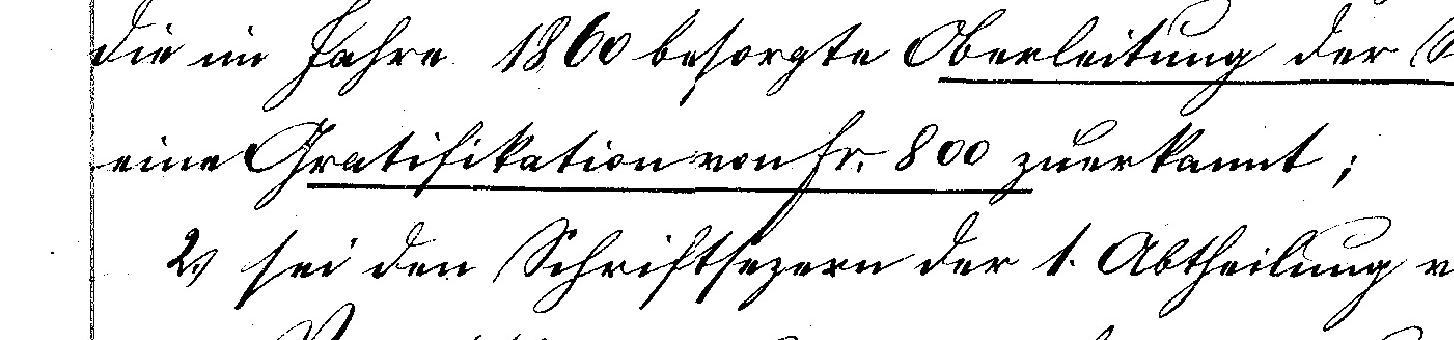 die im Jahre 1860 besorgte Oberleitung der
eine Gratifikation von fr. 800 zuerkannt;
2, sei den Schriftsezern der 1. Abtheilung